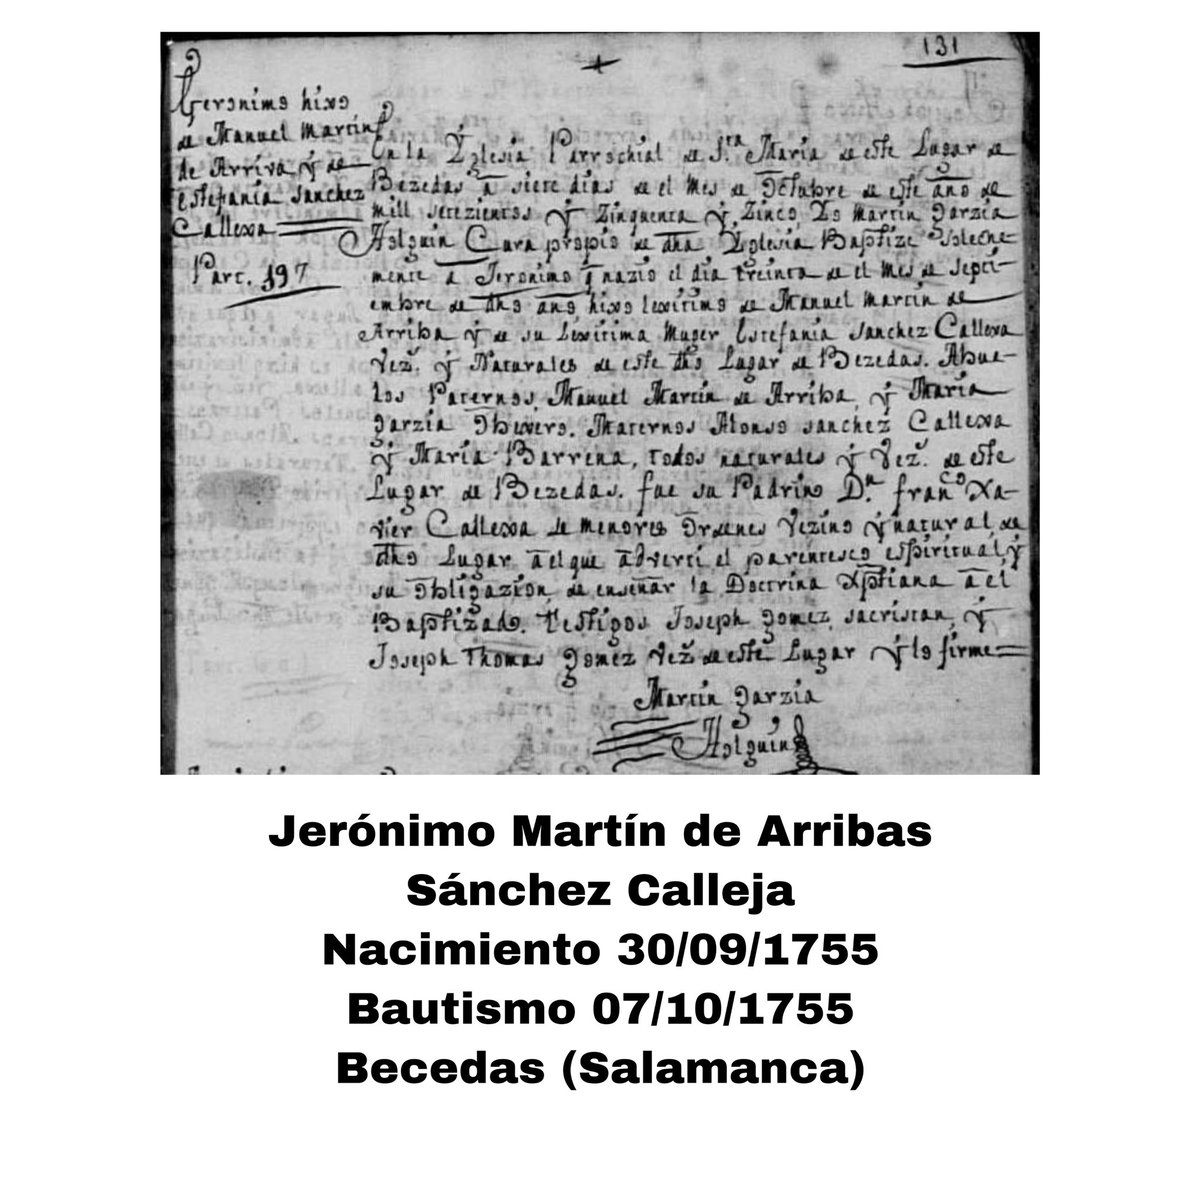 131
Geronimo hixo
de Manuel Martin
de Arriva, y de
Estefania Sanchez
Callexa
Part. 197
En la Yglesia Parrochial de Sta. Maria de este Lugar de
Bezedas â siete dias de el Mes de Octubre de este año de
mill setezientos y Zinquenta y Zinco, Yo Martin Garzia
Holguin Cura propio de dha Yglesia Baptize Solemne-
mente â Jeronimo q nazio el dia treinta de el Mes de Septi-
embre de dho año hixo lexitimo de Manuel Martin de
Arriba y de su Lexitima Muger Estefania Sanchez Callexa
Vezs. y Naturales de este dho Lugar de Bezedas. Abue-
los Paternos, Manuel Martin de Arriba, y Maria
Garzia. Maternos Alonso Sanchez Callexa
y Maria Barrena, todos naturales y Vezs. de este
Lugar de Bezedas. fue su Padrino Dn. Franco. Xa-
vier Callexa de menores Ordenes Vezino y natural de
dho Lugar âel que advertí el parentesco espiritual y
su Obligazion de enseñar la Doctrina Xptiana â el
Baptizado. Testigos Joseph Gomez, sacristan, y
Joseph Thomas Gomez Vezs. de este Lugar y lo firme
Martin Garzia
Holguin
Jerónimo Martín de Arribas
Sánchez Calleja
Nacimiento 30/09/1755
Bautismo 07/10/1755
Becedas (Salamanca)